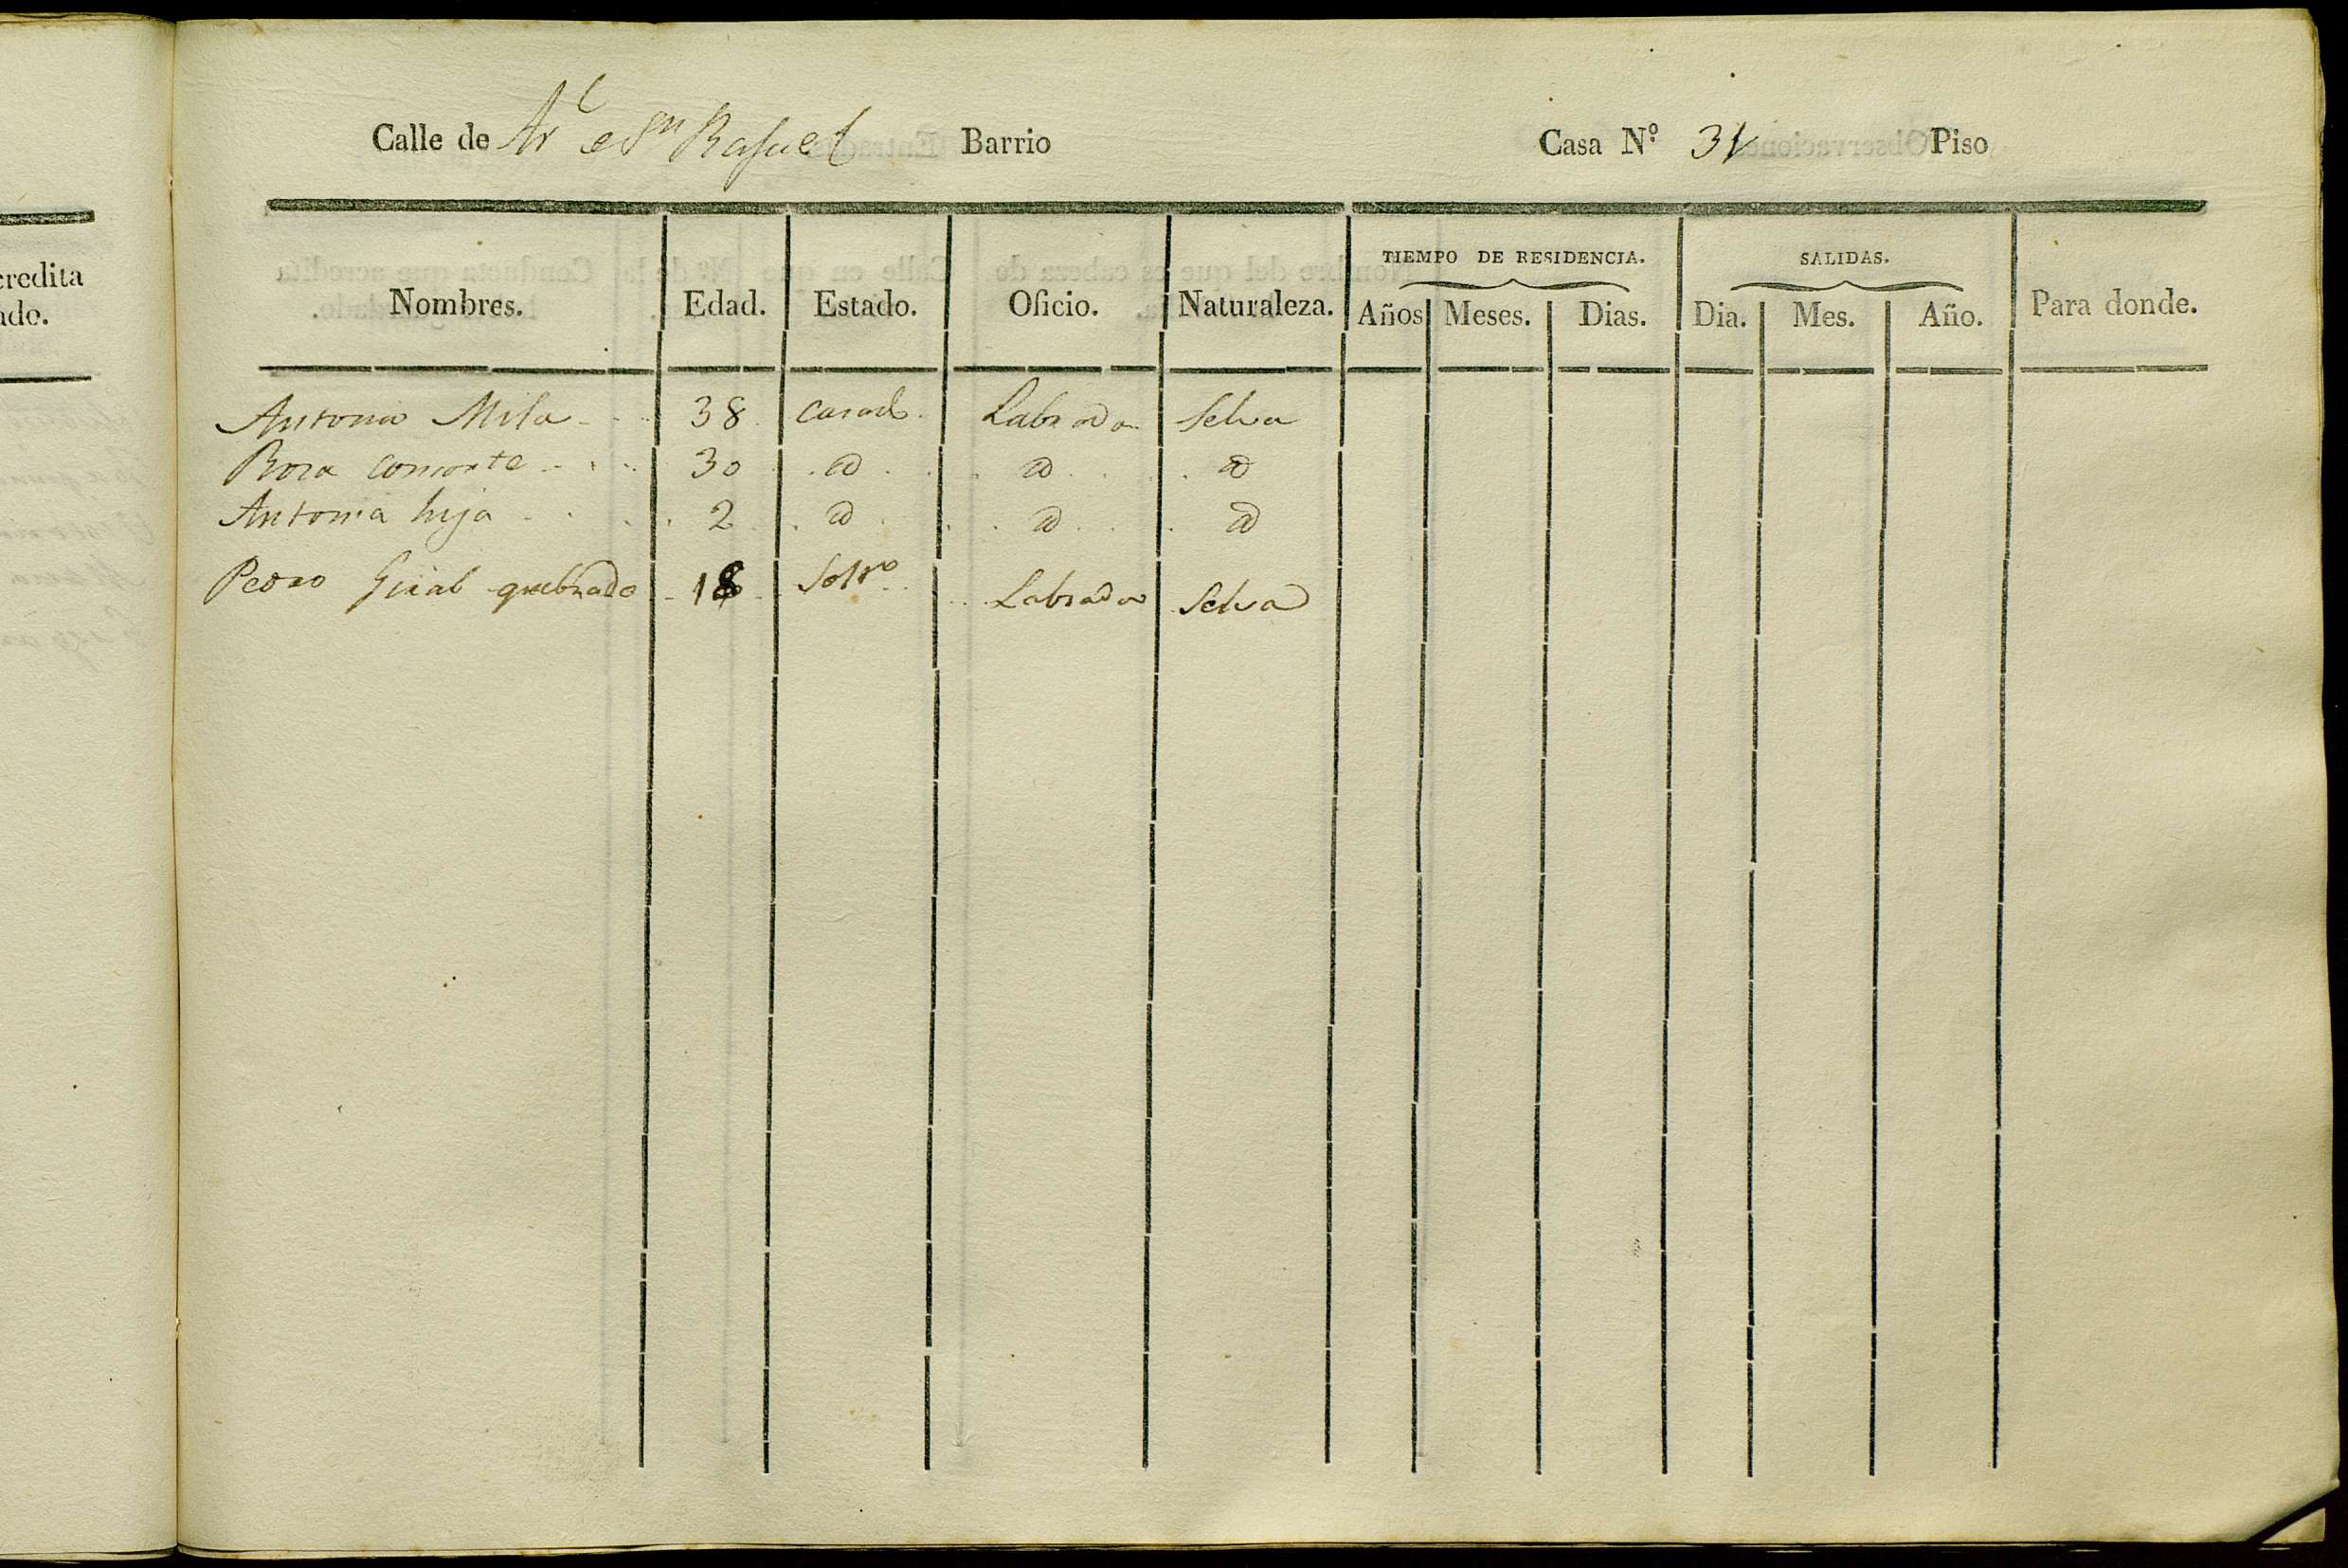 credita
ado.
Calle de Arl e Sn Rafael Barrio Casa N.º 31 Piso
TIEMPO DE RESIDENCIA. SALIDAS.
Nombres. Edad. Estado. Oficio. Naturaleza. Años Meses. Dias. Dia. Mes. Año. Para donde.
Antonio Mila 38 casado Labrador Selva
Rosa consorte 30 @ @ @
Antonia hija 2 @ @ @
Pedro quebrado 18 Soltro Labrador Selva